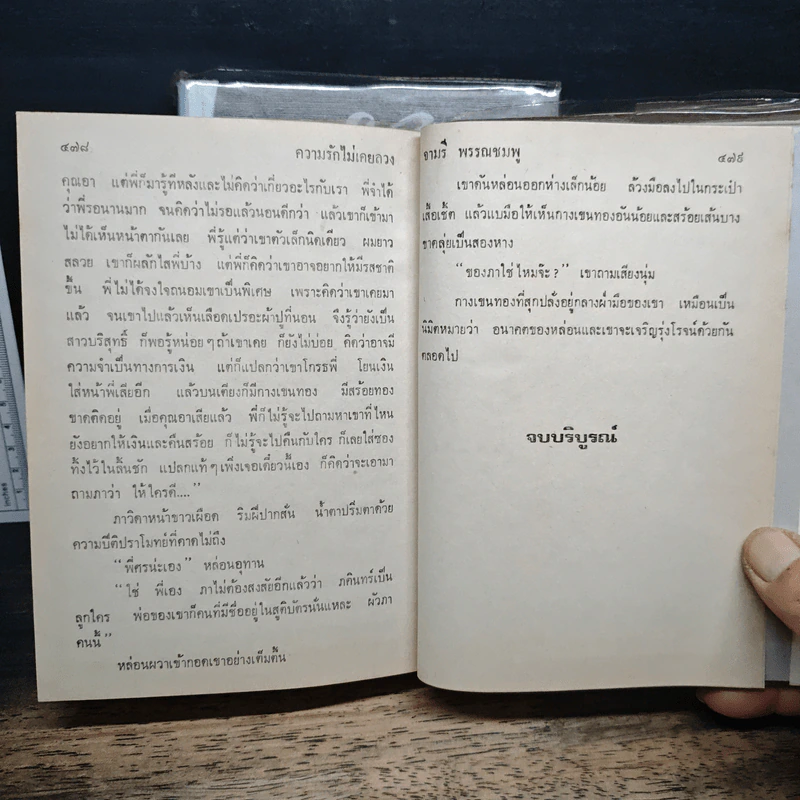 ๔๗๘
ความรักไม่เคยลวง
คุณอา แต่พี่ก็มารู้ทีหลังและไม่คิดว่าเกี่ยวอะไรกับเรา พี่จำได้
ว่าพี่รอนานมาก จนคิดว่าไม่รอแล้วนอนดีกว่า แล้วเขาก็เข้ามา
ไม่ได้เห็นหน้าตากันเลย พี่รู้แต่ว่าเขาตัวเล็กนิดเดียว ผมยาว
สลวย เขาก็ผลักไสพี่บ้าง แต่พี่ก็คิดว่าเขาอาจอยากให้มีรสชาติ
ขึ้น พี่ไม่ได้จงใจถนอมเขาเป็นพิเศษ เพราะคิดว่าเขาเคยมา
แล้ว จนเขาไปแล้วเห็นเลือดเปรอะผ้าปูที่นอน จึงรู้ว่ายังเป็น
สาวบริสุทธิ์ ก็พอรู้หน่อยๆถ้าเขาเคย ก็ยังไม่บ่อย คิดว่าอาจมี
ความจำเป็นทางการเงิน แต่ก็แปลกว่าเขาโกรธพี่ โยนเงิน
ใส่หน้าพี่เสียอีก แล้วบนเตียงก็มีกางเขนทอง มีสร้อยทอง
ขาดติดอยู่ เมื่อคุณอาเสียแล้ว พี่ก็ไม่รู้จะไปถามหาเขาที่ไหน
ยังอยากให้เงินและคืนสร้อย ก็ไม่รู้จะไปคืนกับใคร ก็เลยใส่ซอง
ทิ้งไว้ในลิ้นชัก แปลกแท้ๆเพิ่งเจอเดี๋ยวนี้เอง ก็คิดว่าจะเอามา
ถามภาว่า ให้ใครดี...."
ภาวิดาหน้าขาวเผือด ริมฝีปากสั่น น้ำตาปริ่มตาด้วย
ความปีติปราโมทย์ที่คาดไม่ถึง
"พี่ศรน่ะเอง" หล่อนอุทาน
"ใช่ พี่เอง ภาไม่ต้องสงสัยอีกแล้วว่า ภคินทร์เป็น
ลูกใคร พ่อของเขาก็คนที่มีชื่ออยู่ในสูติบัตรนั่นแหละ ผัวภา
คนนี้"
หล่อนผวาเข้ากอดเขาอย่างเต็มตื้น
จามรี พรรณชมพู
๔๗๙
เขาดันหล่อนออกห่างเล็กน้อย ล้วงมือลงไปในกระเป๋า
เสื้อเชิ้ต แล้วแบมือให้เห็นกางเขนทองอันน้อยและสร้อยเส้นบาง
ขาดลุ่ยเป็นสองหาง
"ของภาใช่ไหมจ๊ะ?" เขาถามเสียงนุ่ม
กางเขนทองที่สุกปลั่งอยู่กลางฝ่ามือของเขา เหมือนเป็น
นิมิตหมายว่า อนาคตของหล่อนและเขาจะเจริญรุ่งโรจน์ด้วยกัน
ตลอดไป
จบบริบูรณ์